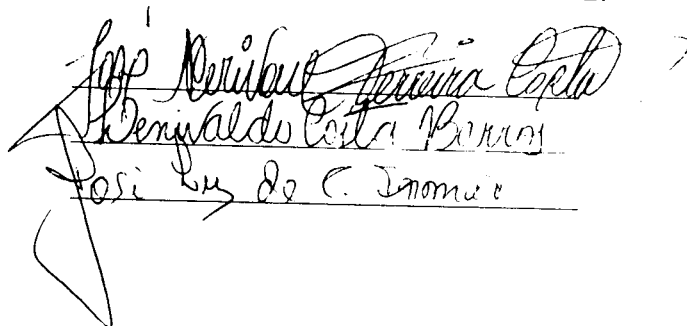 José Nerivan Ferreira Costa
Denivaldo Costa Barros
José Luz de C.